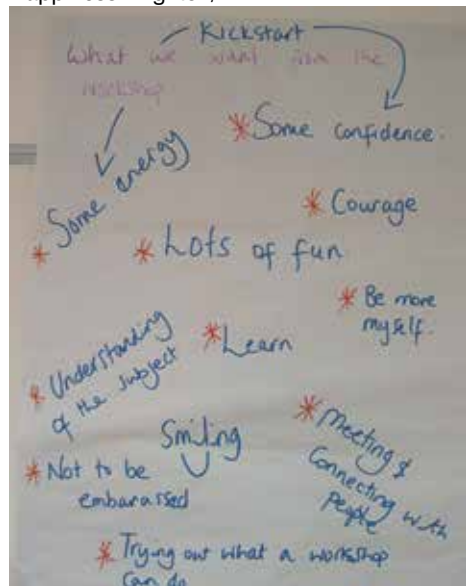 Kickstart
What we want from the
workshop
* Some confidence.
* Some energy
* Courage
* Lots of fun
* Be more
myself.
* Understanding
of the subject
* Learn
Smiling
* Meeting &
Connecting with
people
* Not to be
embarassed
* Trying out what a workshop
can do